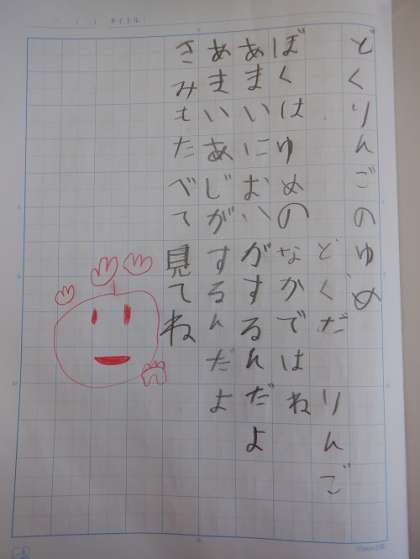 どくりんごのゆめ
どくだ りんご
ぼくはゆめのなかではね
あまいにおいがするんだよ
あまいあじがするんだよ
きみもたべて見てね